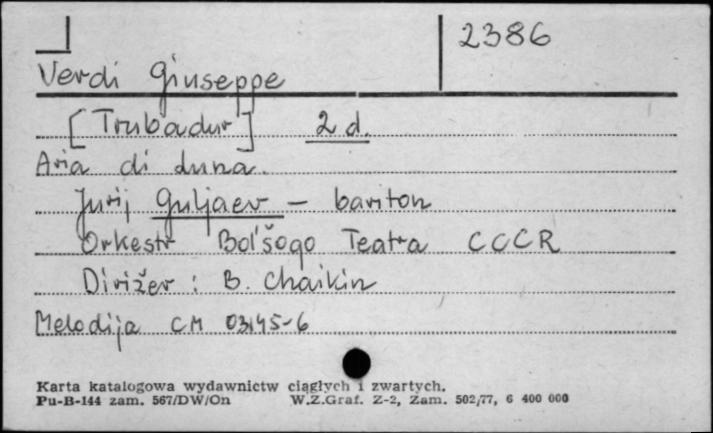 2386
Verdi Giuseppe
[Trubadur] 2 d.
Aria di Luna.
Jurij Guljaev - bariton
Orkestr Bol'šogo Teatra CCCR
Dirižer: B. Chaikin
Melodija CM 03145-6
Karta katalogowa wydawnictw ciągłych i zwartych.
Pu-B-144 zam. 567/DW/On W.Z.Graf. Z-2, Zam. 502/77, 6 400 000